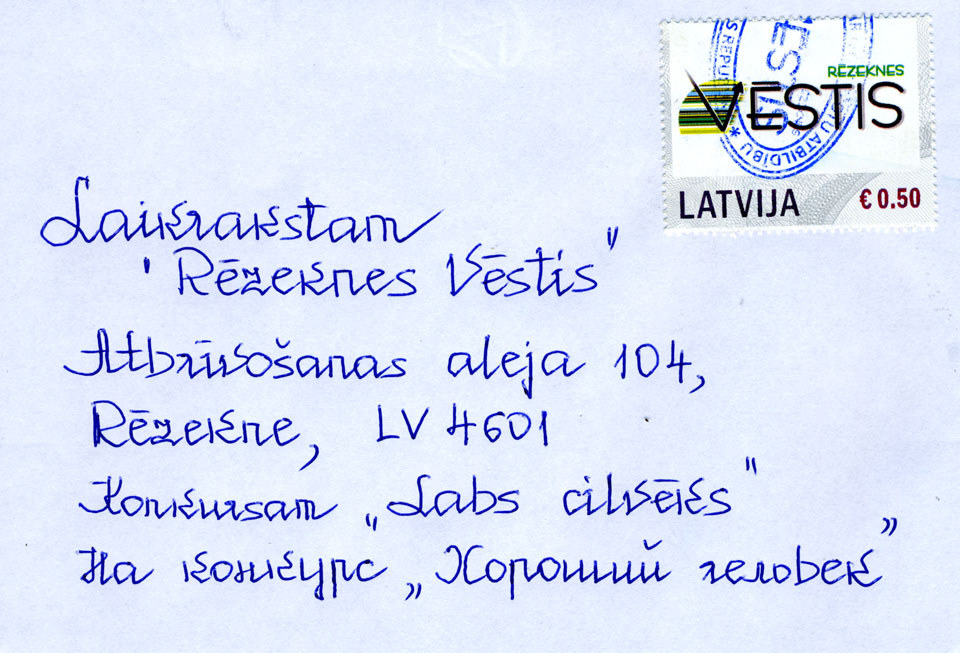 RĒZEKNES
VĒSTIS
LATVIJA
€ 0.50
ATBILDĪBU *
Laikrakstam
" Rēzeknes Vēstis"
Atbrīvošanas aleja 104,
Rēzekne, LV 4601
Konkursam „Labs cilvēks"
На конкурс „Хороший человек”